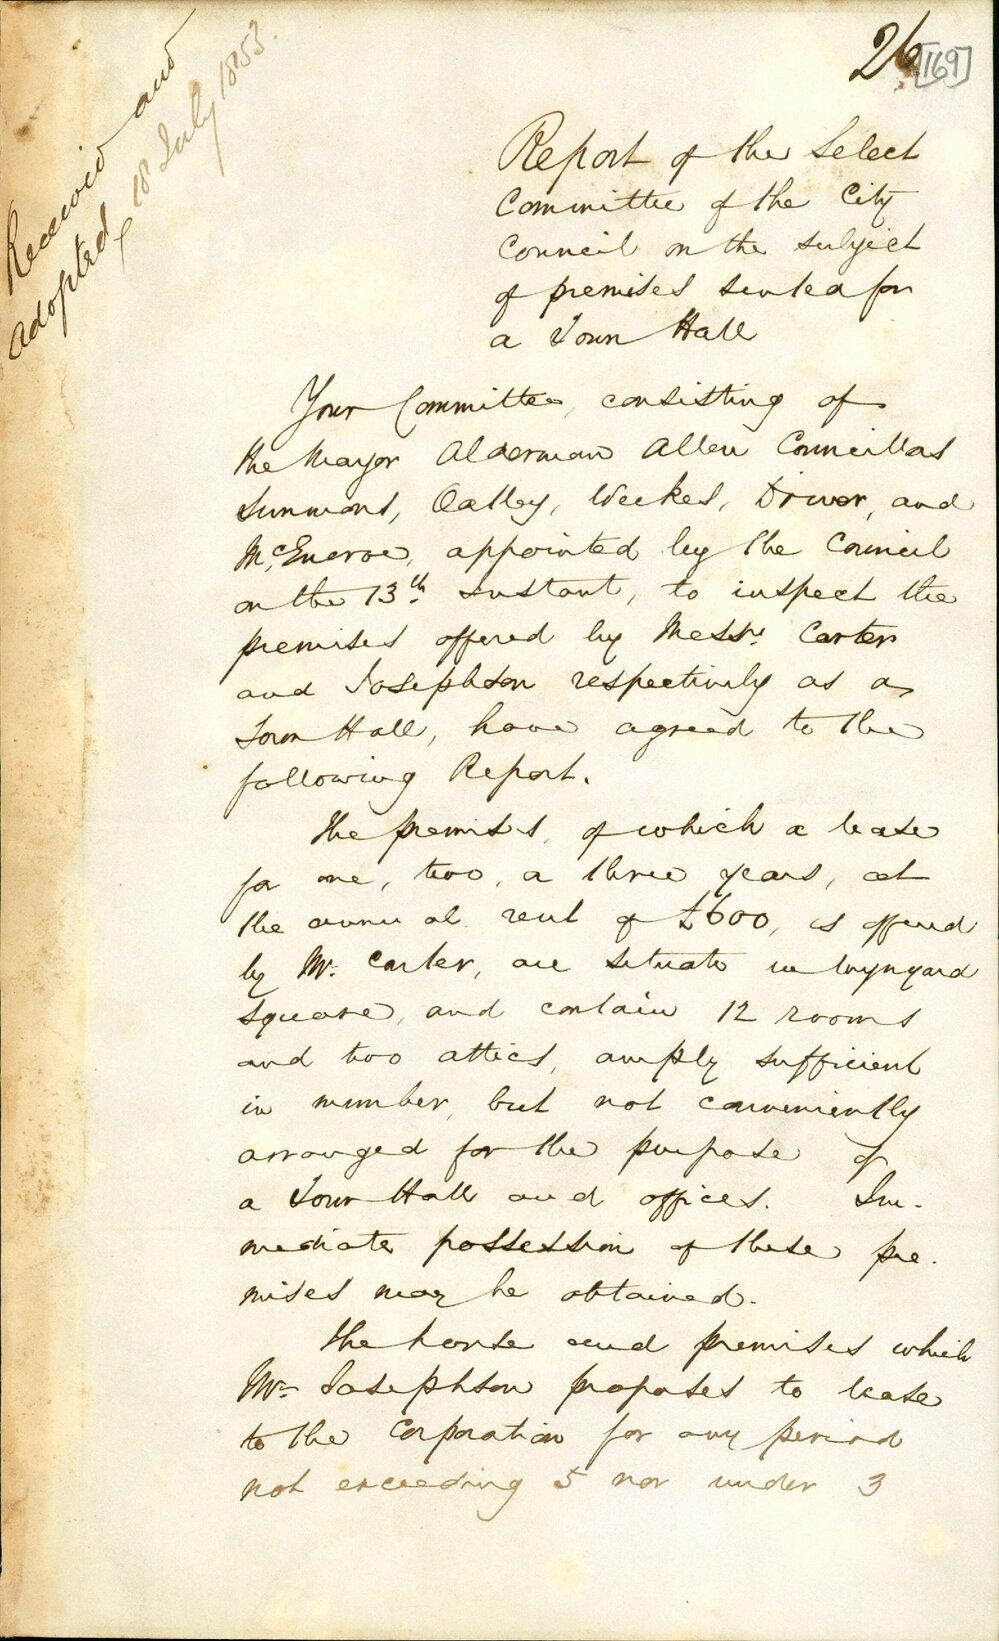 Received and
adopted 18 July 1853.
26 [169]
Report of the Select
Committee of the City
Council on the subject
of premises suited for
a Town Hall
Your Committee, consisting of
the Mayor Alderman Allen Councillors
Simmons, Oatley, Weekes, Driver, and
McEncroe, appointed by the Council
on the 13th instant, to inspect the
premises offered by Messrs. Carter
and Josephson respectively as a
Town Hall, have agreed to the
following Report.
The premises, of which a lease
for one, two, or three years, at
the annual rent of £600, is offered
by Mr. Carter, are situate in Wynyard
Square, and contain 12 rooms
and two attics, amply sufficient
in number, but not conveniently
arranged for the purpose of
a Town Hall and offices. Im-
mediate possession of these pre-
mises may be obtained.
The house and premises which
Mr Josephson proposes to lease
to the Corporation for any period
not exceeding 5 nor under 3